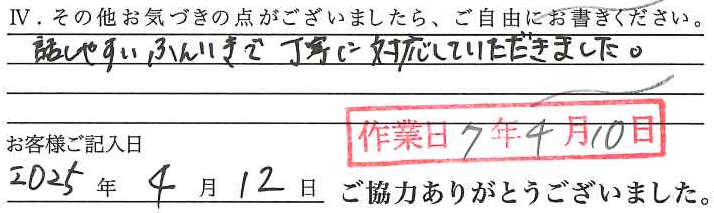 Ⅳ．その他お気づきの点がございましたら、ご自由にお書きください。
話しやすいふんいきで 丁寧に対応していただきました。
作業日7年4月10日
お客様ご記入日
2025年4月12日 ご協力ありがとうございました。